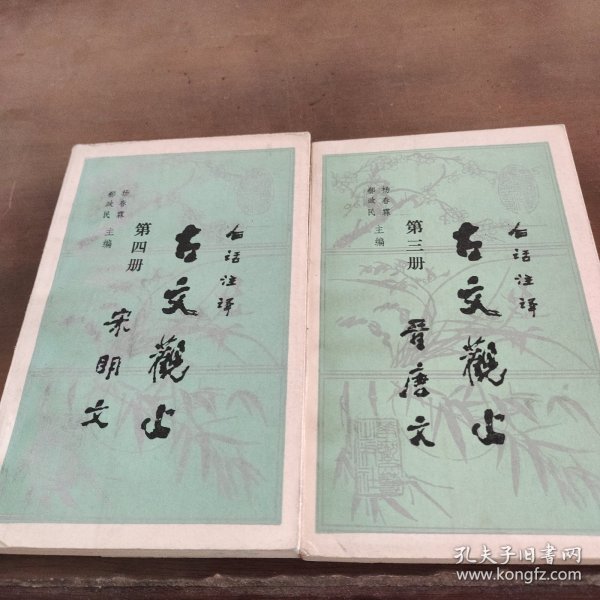 白话注译
古文觀止
第四册
宋明文
杨春霖
郝政民
主编
白话注译
古文觀止
第三册
晋唐文
杨春霖
郝政民
主编
孔夫子旧书网
www.kongfz.com